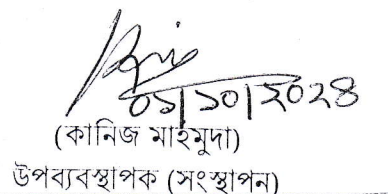 ০১/১০/২০২৪
(কানিজ মাহমুদা)
উপব্যবস্থাপক (সংস্থাপন)